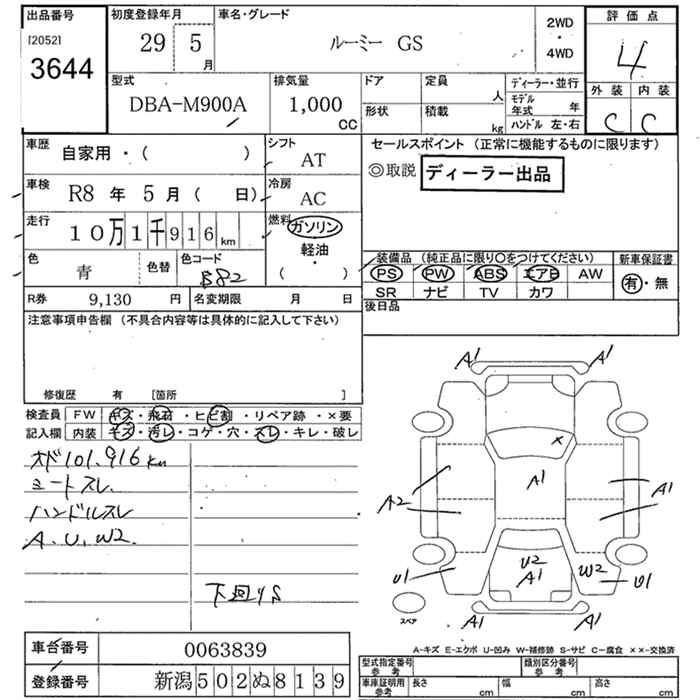 出品番号
[2052]
3644
初度登録年月
29 5
月
車名・グレード
ルーミー GS
2WD
・
4WD
評価点
4
外装 内装
C C
型式
DBA-M900A
排気量
1,000
CC
ドア
定員
人
形状
積載
kg
ディーラー・並行
モデル
年式 年
ハンドル 左・右
車歴
自家用・( )
シフト
AT
車検
R8 年 5 月 ( 日)
冷房
AC
走行
10万1千916km
燃料
ガソリン
軽油・
( )
色
青
色替
色コード
B82
R券 9,130 円
名変期限 月 日
セールスポイント (正常に機能するものに限ります)
◎取説 ディーラー出品
装備品 (純正品に限り○をつけてください)
PS PW ABS エアB AW
SR ナビ TV カワ
新車保証書
有・無
後日品
注意事項申告欄 (不具合内容等は具体的に記入して下さい)
修復歴 有 [箇所 ]
検査員
記入欄
FW キズ・飛石・ヒビ割・リペア跡・×要
内装 キズ・汚レ・コゲ・穴・スレ・キレ・破レ
オド101,916km
シートスレ
ハンドルスレ
A、U、W2
下回りS
A1 A1
×
A1
A2
A1
U2
A1
W2
U1
U1
A1 A1
スペア
A-キズ E-エクボ U-凹み W-補修跡 S-サビ C-腐食 ××-交換済
車台番号 0063839
登録番号 新潟502ぬ8139
型式指定番号
参考
類別区分番号
参考
車庫証明用
参考
長さ cm
幅 cm
高さ cm